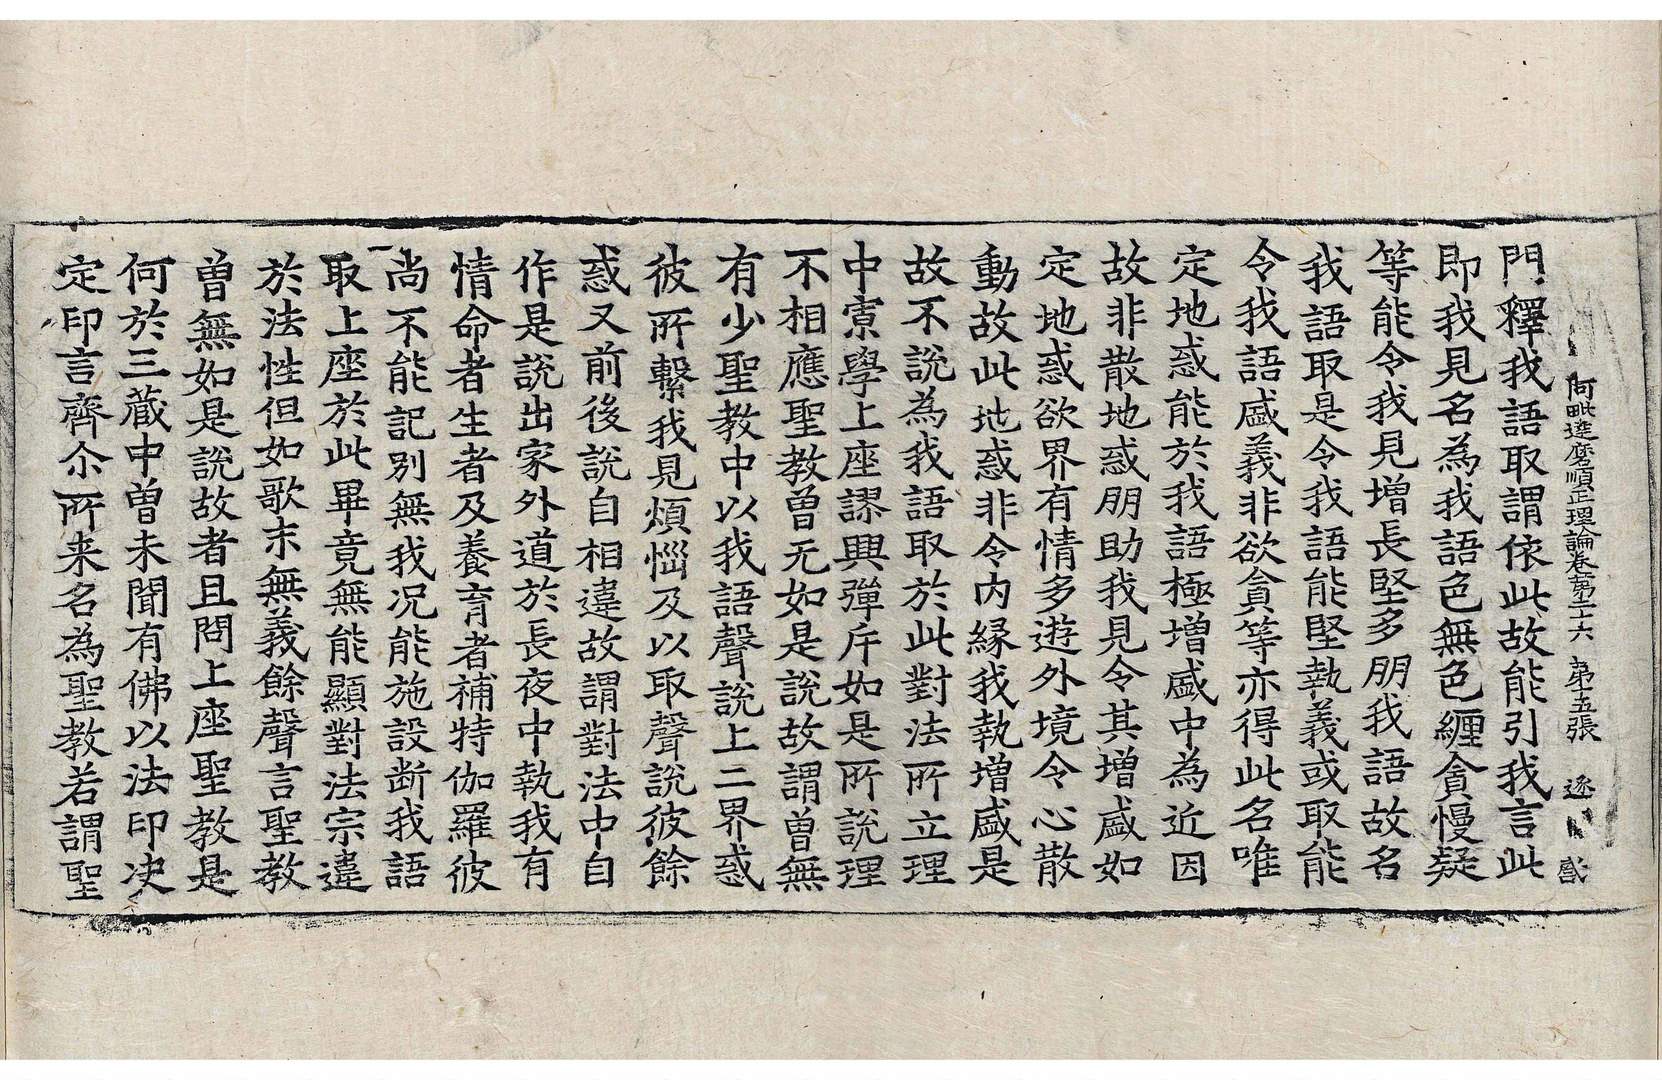 阿毗達磨順正理論卷第二十六 第五張 逐
門釋我語取謂依此故能引我言此
即我見名為我語色無色纏貪慢疑
等能令我見增長堅多朋我語故名
我語取是令我語能堅執義或取能
令我語盛義非欲貪等亦得此名唯
定地惑能於我語極增盛中為近因
故非散地惑朋助我見令其增盛如
定地惑欲界有情多遊外境令心散
動故此地惑非令内緣我執增盛是
故不說為我語取於此對法所立理
中寡學上座謬興彈斥如是所說理
不相應聖教曾无如是說故謂曾無
有少聖教中以我語聲說上二界惑
彼所繫我見煩惱及以取聲說彼餘
惑又前後說自相違故謂對法中自
作是說出家外道於長夜中執我有
情命者生者及養育者補特伽羅彼
尚不能記別無我况能施設断我語
取上座於此畢竟無能顯對法宗違
於法性但如歌末無義餘聲言聖教
曾無如是說故者且問上座聖教是
何於三藏中曾未聞有佛以法印决
定印言齊尒所来名為聖教若謂聖